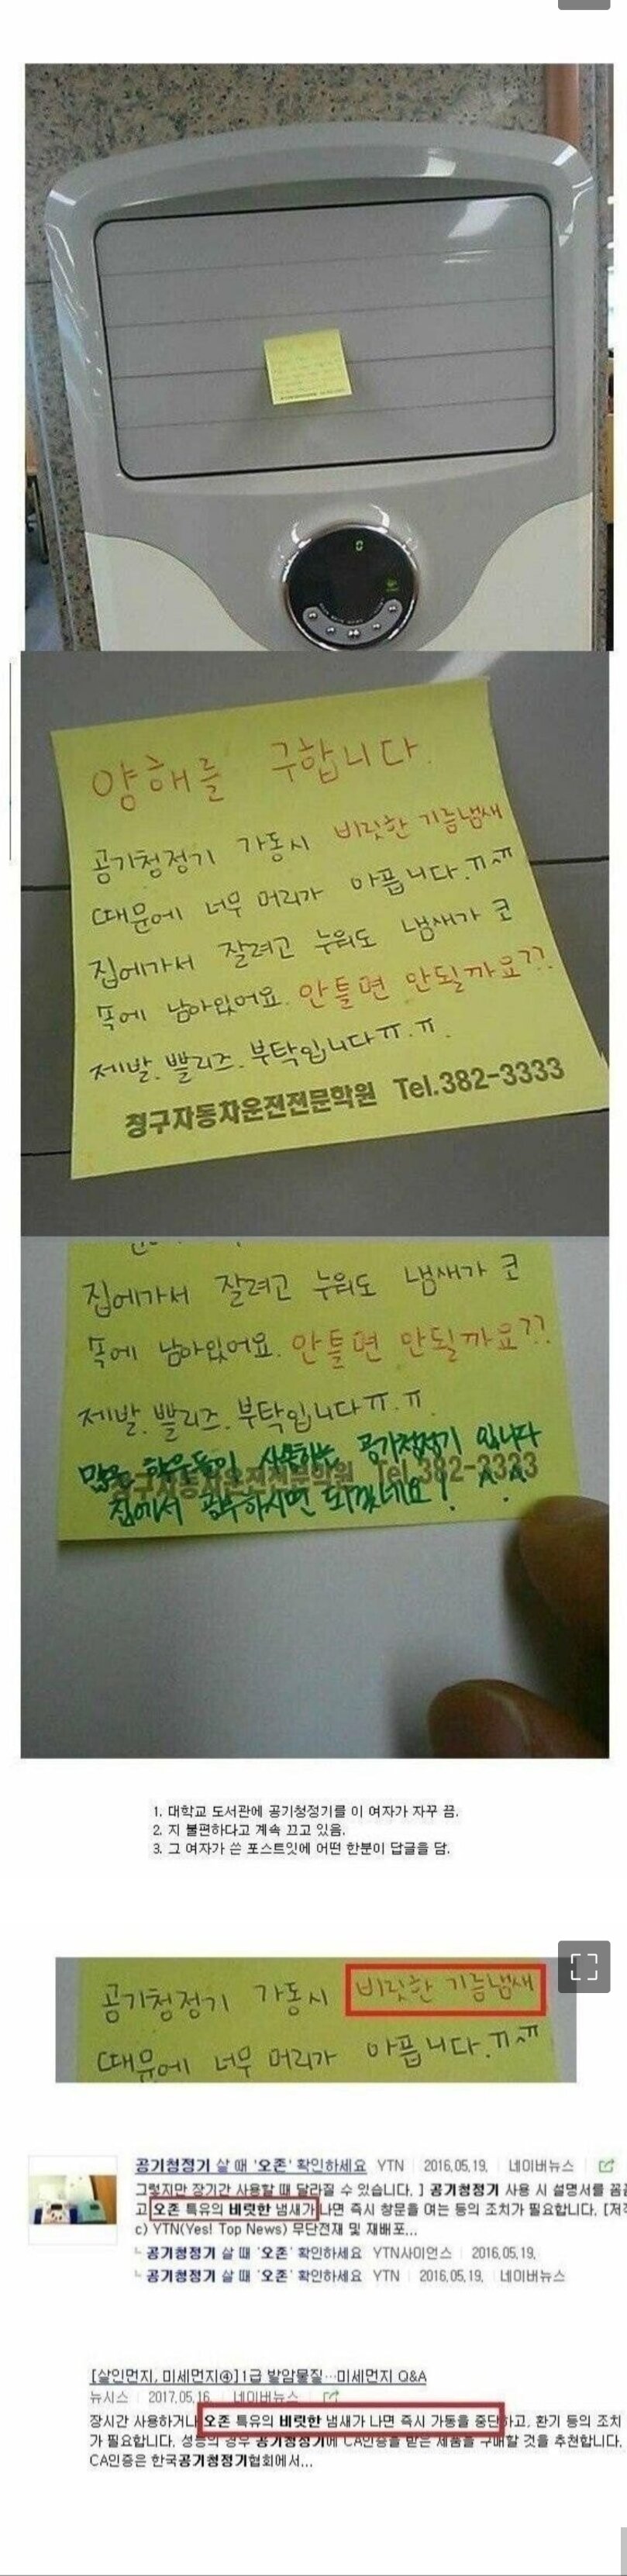 양해를 구합니다.
공기청정기 가동시 비릿한 기름냄새
때문에 너무 머리가 아픕니다.ㅠㅠ
집에가서 잘려고 누워도 냄새가 코
속에 남아있어요. 안틀면 안될까요??
제발. 빨리즈. 부탁입니다ㅠ.ㅠ.
청구자동차운전전문학원 Tel.382-3333
집에가서 잘려고 누워도 냄새가 코
속에 남아있어요. 안틀면 안될까요??
제발. 빨리즈. 부탁입니다ㅠ.ㅠ
많은 학우들이 사용하는 공기청정기 입니다
청구자동차운전전문학원 Tel.382-3333
집에서 공부하시면 되겠네요! ^.^
1. 대학교 도서관에 공기청정기를 이 여자가 자꾸 끔.
2. 지 불편하다고 계속 끄고 있음.
3. 그 여자가 쓴 포스트잇에 어떤 한분이 답글을 담.
공기청정기 가동시 비릿한 기름냄새
때문에 너무 머리가 아픕니다.ㅠㅠ
공기청정기 살 때 '오존' 확인하세요 YTN 2016.05.19. 네이버뉴스
그렇지만 장기간 사용할 때 달라질 수 있습니다. ] 공기청정기 사용 시 설명서를 꼼꼼
고 오존 특유의 비릿한 냄새가 나면 즉시 창문을 여는 등의 조치가 필요합니다. [저작
c) YTN(Yes! Top News) 무단전재 및 재배포...
공기청정기 살 때 '오존' 확인하세요 YTN사이언스 2016.05.19.
공기청정기 살 때 '오존' 확인하세요 YTN 2016.05.19. 네이버뉴스
[살인먼지, 미세먼지④]1급 발암물질…미세먼지 Q&A
뉴시스 2017.05.16. 네이버뉴스
장시간 사용하거나 오존 특유의 비릿한 냄새가 나면 즉시 가동을 중단하고, 환기 등의 조치
가 필요합니다. 성능의 경우 공기청정기에 CA인증을 받은 제품을 구매할 것을 추천합니다.
CA인증은 한국공기청정기협회에서...